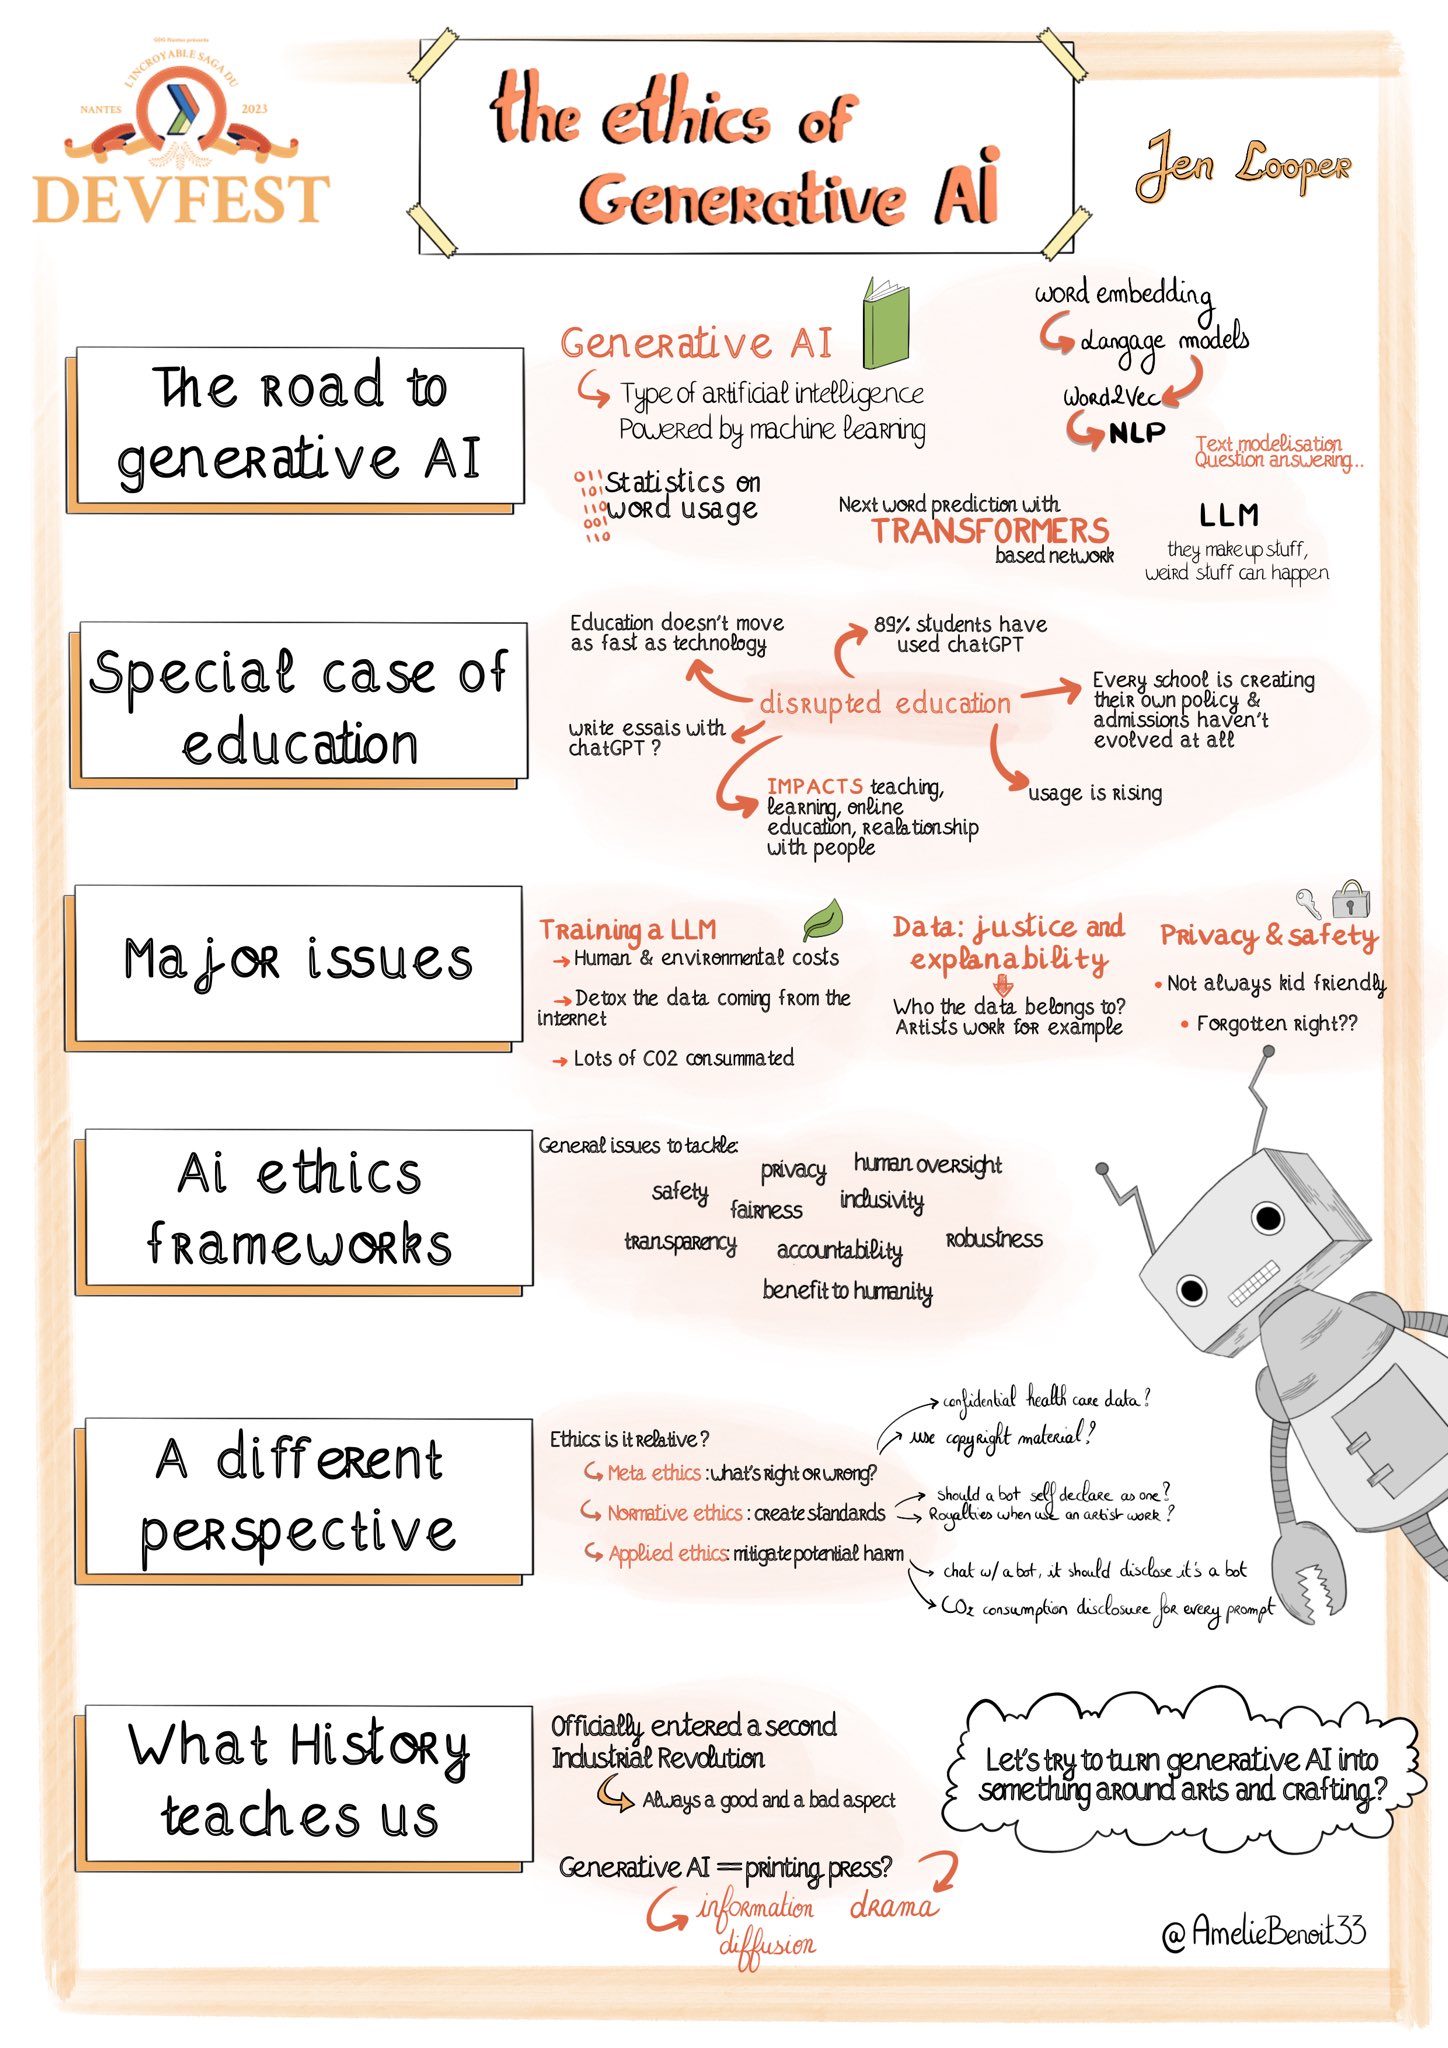 GDG Nantes présente
L'INCROYABLE SAGA DU
NANTES
2023
DEVFEST
the ethics of
Generative Ai
Jen Looper
The road to
generative AI
Generative AI
Type of artificial intelligence
Powered by machine learning
011
101
110
001
110
Statistics on
word usage
word embedding
Langage models
Word2Vec
NLP
Text modelisation
Question answering...
Next word prediction with
TRANSFORMERS
based network
LLM
they make up stuff,
weird stuff can happen
Special case of
education
Education doesn't move
as fast as technology
89% students have
used chatGPT
disrupted education
Every school is creating
their own policy &
admissions haven't
evolved at all
write essais with
chatGPT ?
IMPACTS teaching,
learning, online
education, realationship
with people
usage is rising
Major issues
Training a LLM
→ Human & environmental costs
→ Detox the data coming from the
internet
→ Lots of CO2 consummated
Data: justice and
explanability
Who the data belongs to?
Artists work for example
Privacy & safety
• Not always kid friendly
• Forgotten right??
Ai ethics
frameworks
General issues to tackle:
privacy
human oversight
safety
fairness
inclusivity
transparency
accountability
robustness
benefit to humanity
A different
perspective
Ethics: is it relative ?
Meta ethics : what's right or wrong?
confidential health care data ?
use copyright material ?
Normative ethics : create standards
should a bot self declare as one ?
Royalties when use an artist work ?
Applied ethics: mitigate potential harm
chat w/ a bot, it should disclose it's a bot
CO2 consumption disclosure for every prompt
What History
teaches us
Officially entered a second
Industrial Revolution
Always a good and a bad aspect
Generative AI = printing press?
information
diffusion
drama
Let's try to turn generative AI into
something around arts and crafting?
@AmelieBenoit33